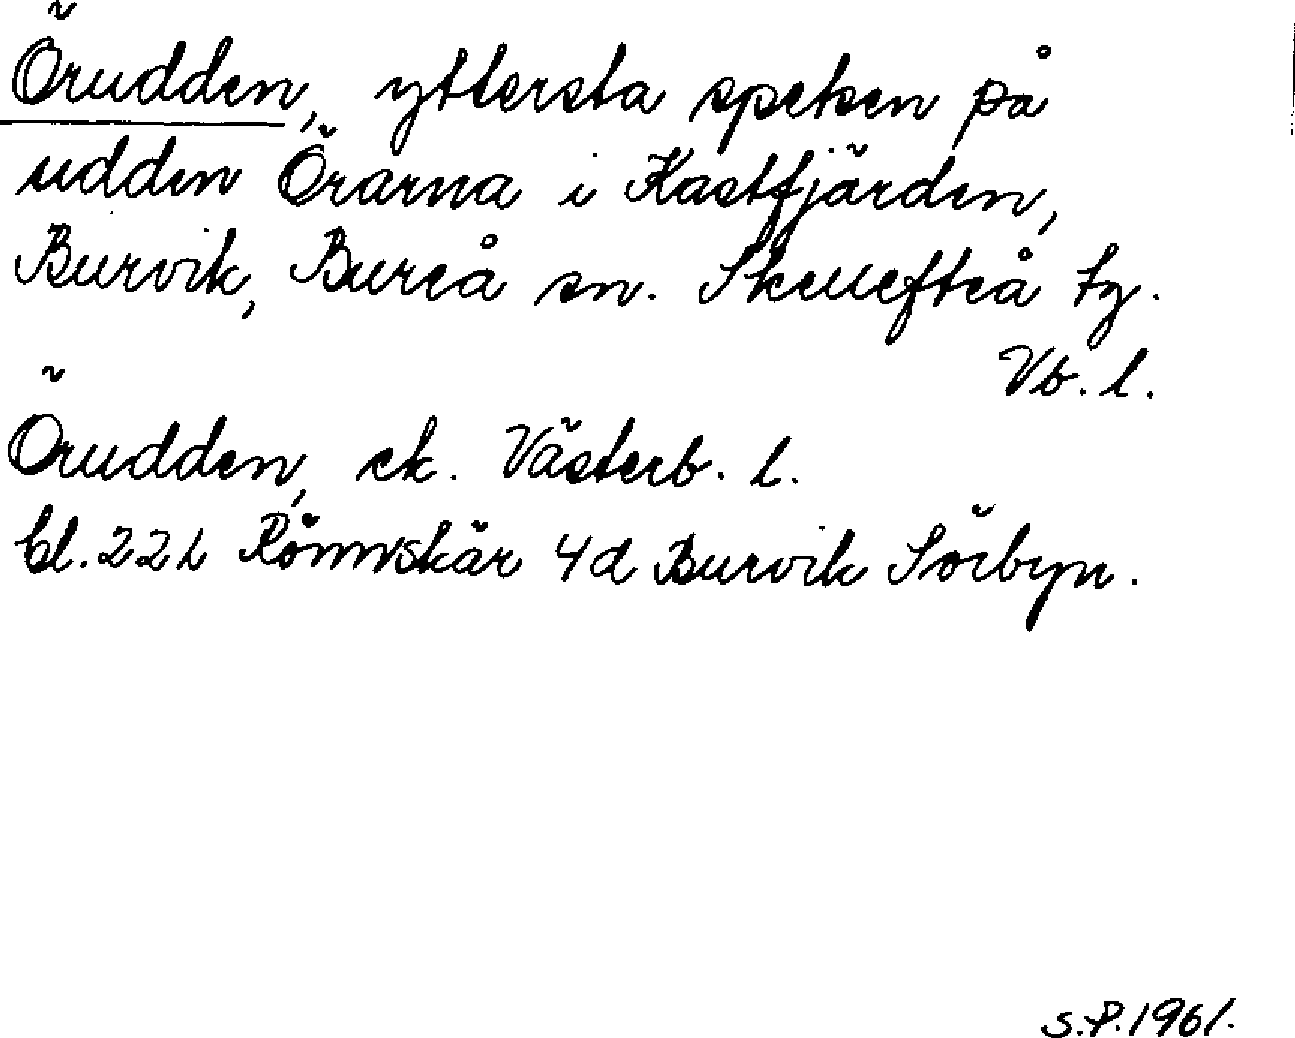 Örudden, yttersta spetsen på
udden Örarna i Kastfjärden,
Burvik, Bureå sn. Skellefteå tg.
Vb. l.
Örudden, ek. Västerb. l.
bl. 22L Rönnskär 4d Burvik Sörbyn.
S.P. 1961.